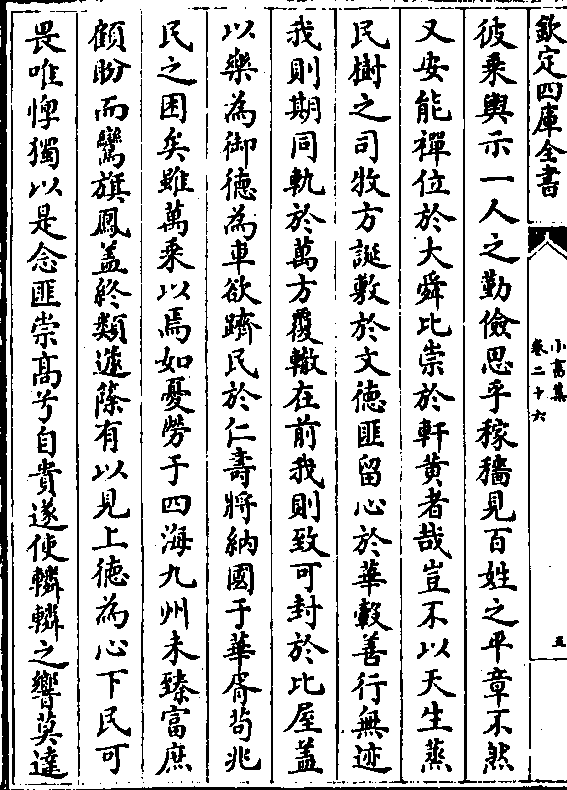 欽定四庫全書
小畜集
卷二十六
五
彼乘輿示一人之勤儉思乎稼穡見百姓之平章不然
又安能禪位於大舜比崇於軒黄者哉豈不以天生蒸
民樹之司牧方誕敷於文德匪留心於華轂善行無迹
我則期同軌於萬方覆轍在前我則致可封於比屋蓋
以樂為御德為車欲躋民於仁壽將納國于華胥茍兆
民之困矣雖萬乘以焉如憂勞于四海九州未臻富庶
顧盼而鸞旗鳳蓋終類遽篨有以見上德為心下民可
畏唯惸獨以是念匪崇髙兮自貴遂使轔轔之響莫達